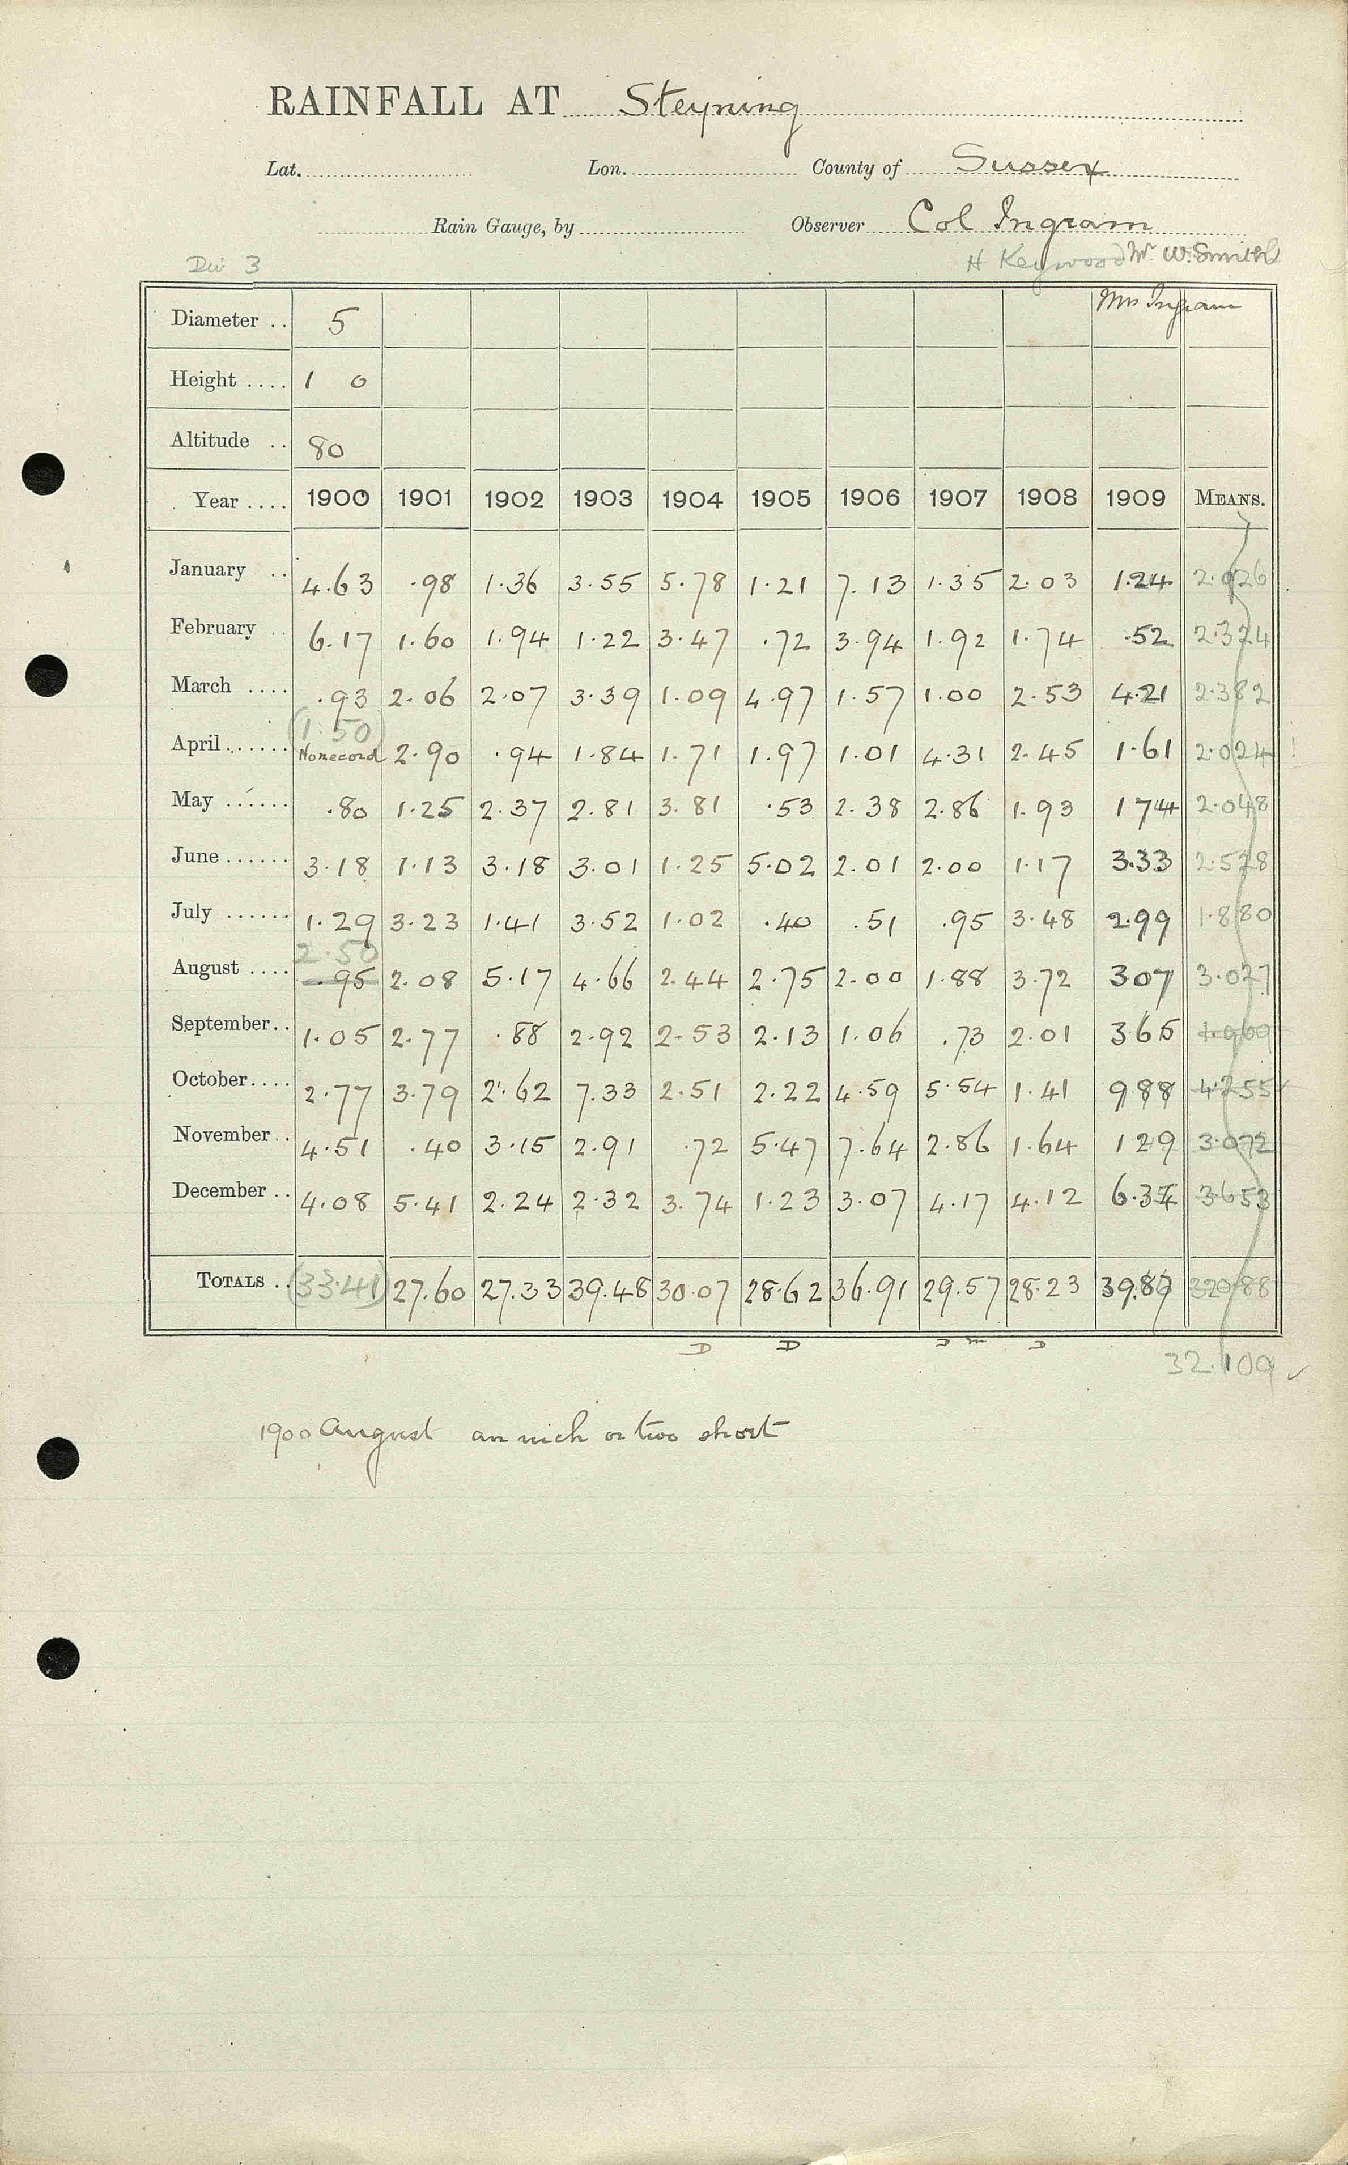 RAINFALL AT Steyning
Lat. Lon. County of Sussex
Rain Gauge, by Observer Col Ingram
Div 3 H Keywood Mr W. Smith
Diameter .. 5 Mrs Ingram
Height .... 1 0
Altitude .. 80
Year .... 1900 1901 1902 1903 1904 1905 1906 1907 1908 1909 MEANS.
January .. 4.63 .98 1.36 3.55 5.78 1.21 7.13 1.35 2.03 1.24 2.926
February .. 6.17 1.60 1.94 1.22 3.47 .72 3.94 1.92 1.74 .52 2.324
March .... .93 2.06 2.07 3.39 1.09 4.97 1.57 1.00 2.53 4.21 2.382
(1.50)
April ...... No record 2.90 .94 1.84 1.71 1.97 1.01 4.31 2.45 1.61 2.024
May ...... .80 1.25 2.37 2.81 3.81 .53 2.38 2.86 1.93 1 74 2.048
June ...... 3.18 1.13 3.18 3.01 1.25 5.02 2.01 2.00 1.17 3.33 2.528
July ...... 1.29 3.23 1.41 3.52 1.02 .40 .51 .95 3.48 2.99 1.880
2.50
August .... .95 2.08 5.17 4.66 2.44 2.75 2.00 1.88 3.72 3 07 3.027
September .. 1.05 2.77 .88 2.92 2.53 2.13 1.06 .73 2.01 3 65
October .... 2.77 3.79 2.62 7.33 2.51 2.22 4.59 5.54 1.41 9 88 4.255
November .. 4.51 .40 3.15 2.91 .72 5.47 7.64 2.86 1.64 1 29 3.072
December .. 4.08 5.41 2.24 2.32 3.74 1.23 3.07 4.17 4.12 6.34 3.653
TOTALS .. (33.41) 27.60 27.33 39.48 30.07 28.62 36.91 29.57 28.23 39.87
D D D m D
32.109 ✓
1900 August an inch or two short